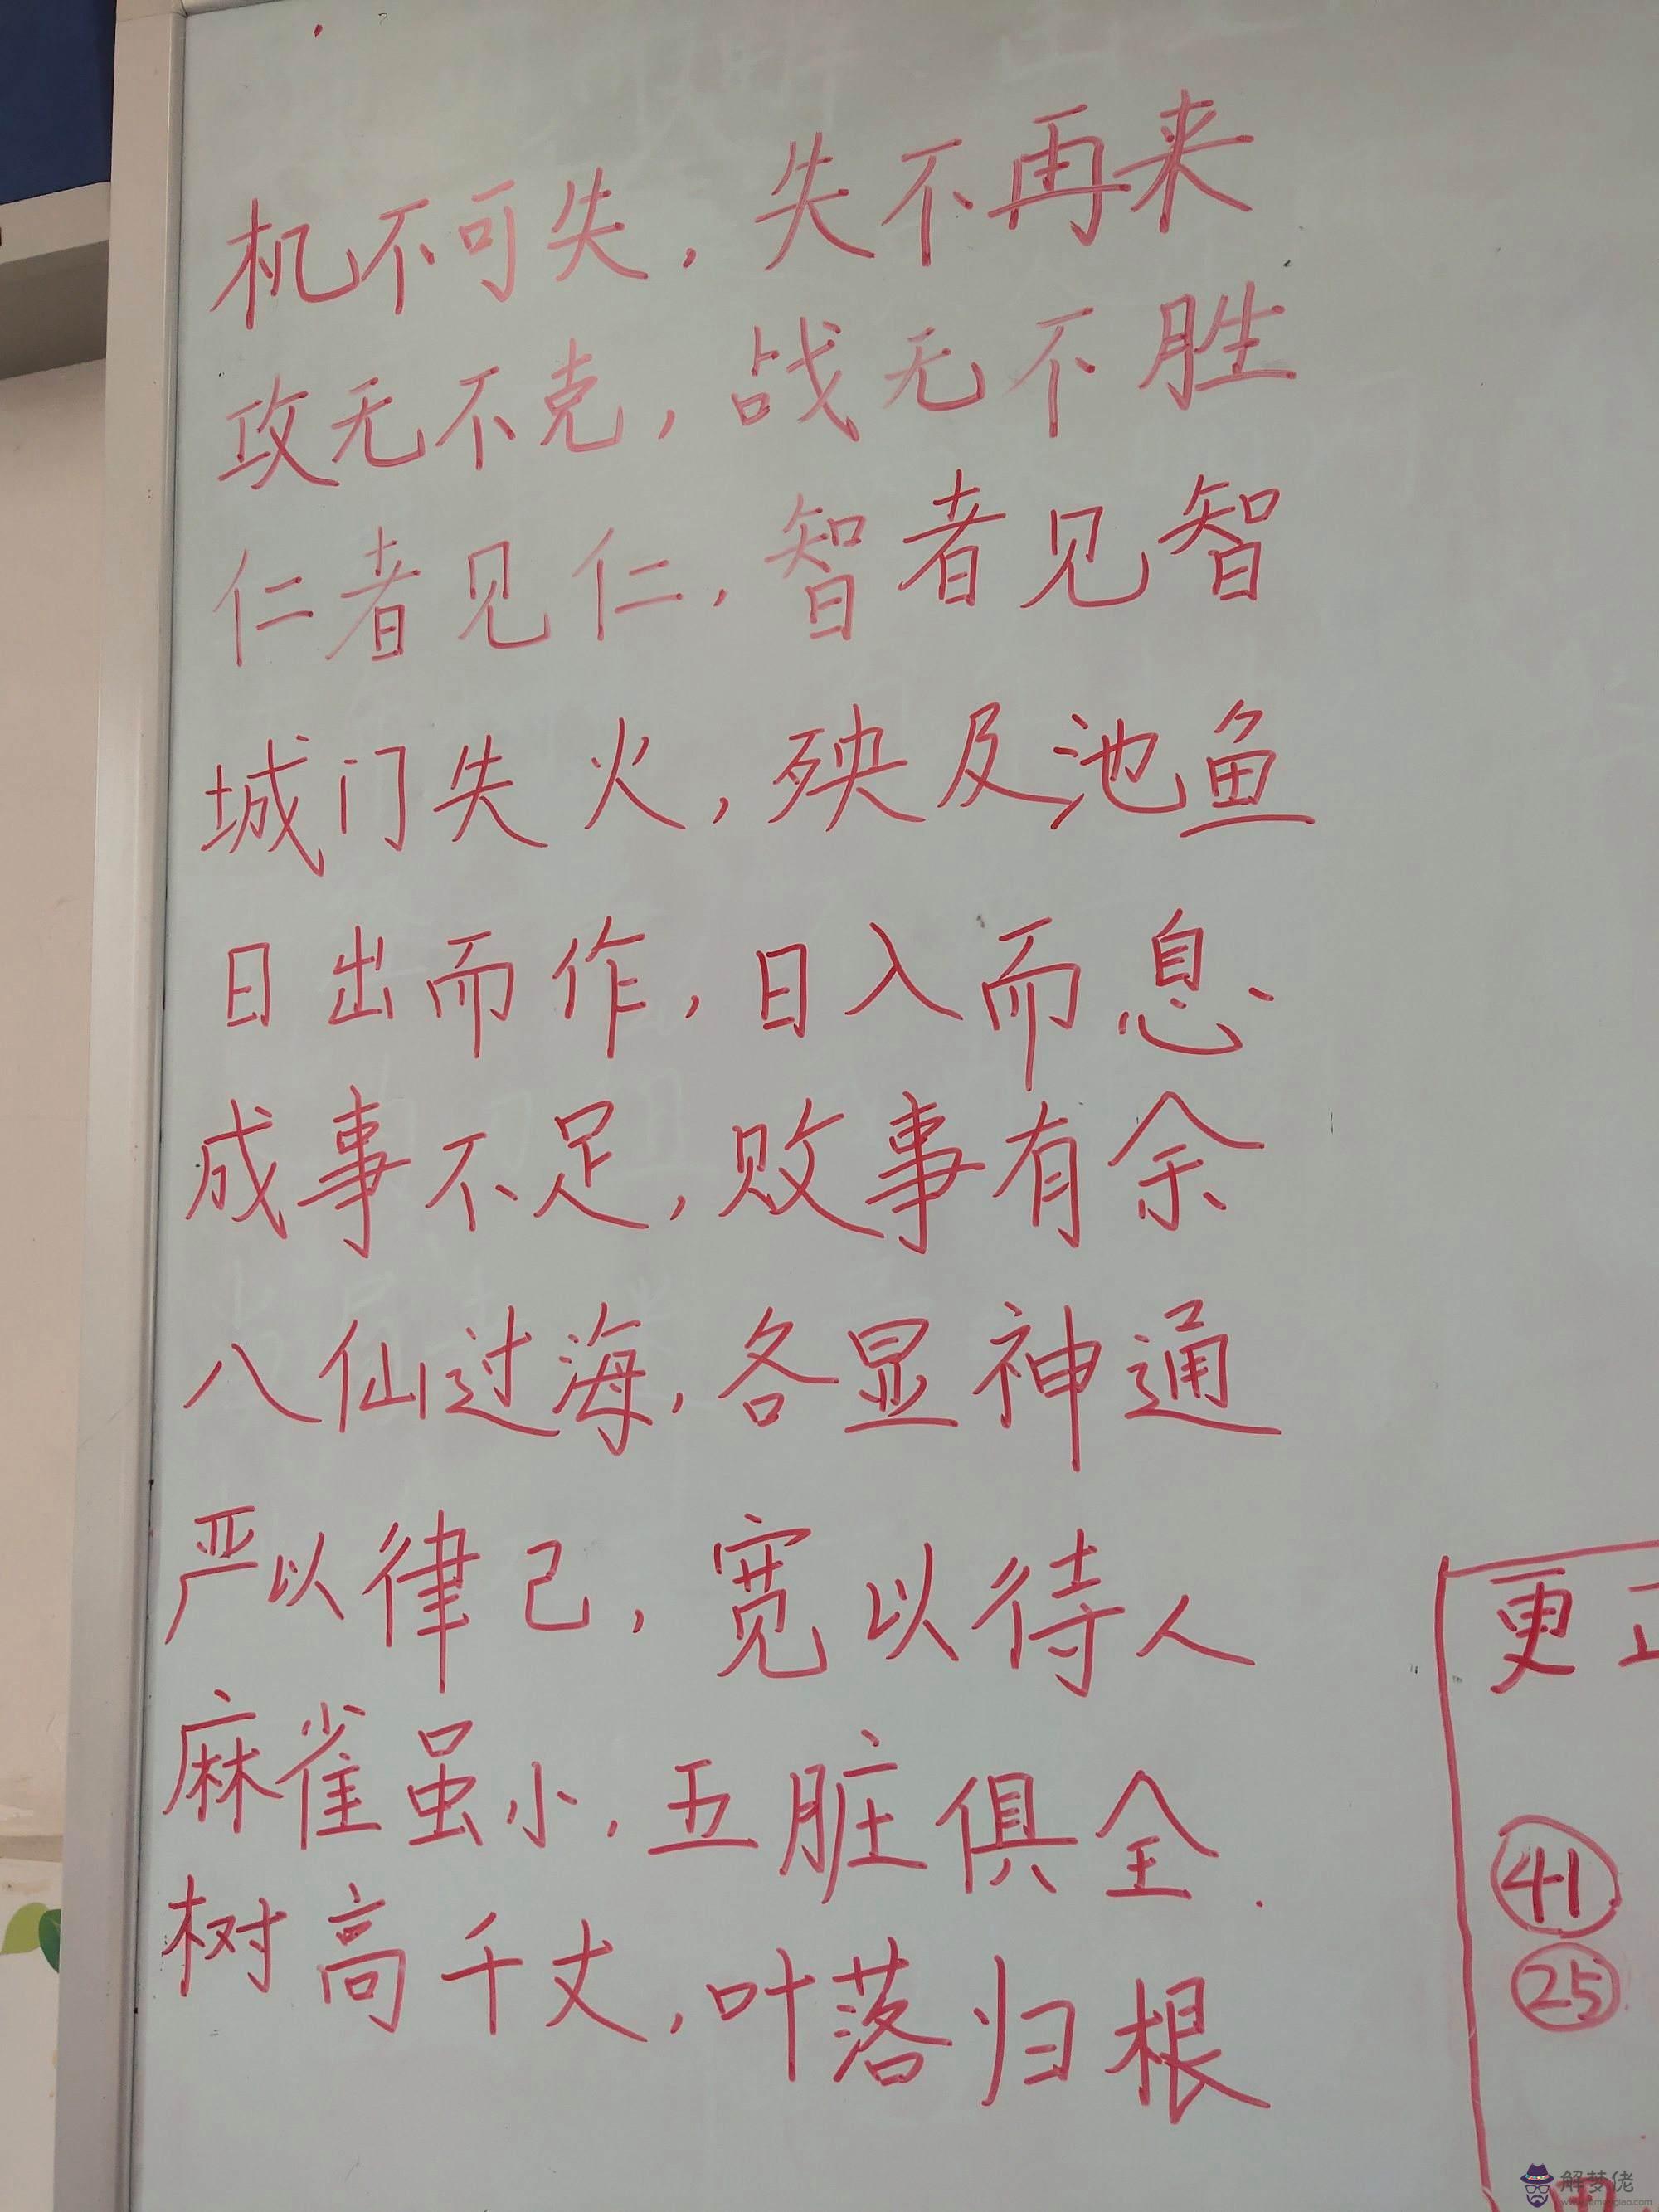 机不可失，失不再来
攻无不克，战无不胜
仁者见仁，智者见智
城门失火，殃及池鱼
日出而作，日入而息、
成事不足，败事有余
八仙过海，各显神通
严以律己，宽以待人
麻雀虽小，五脏俱全.
树高千丈，叶落归根
更正
41
25
解梦佬